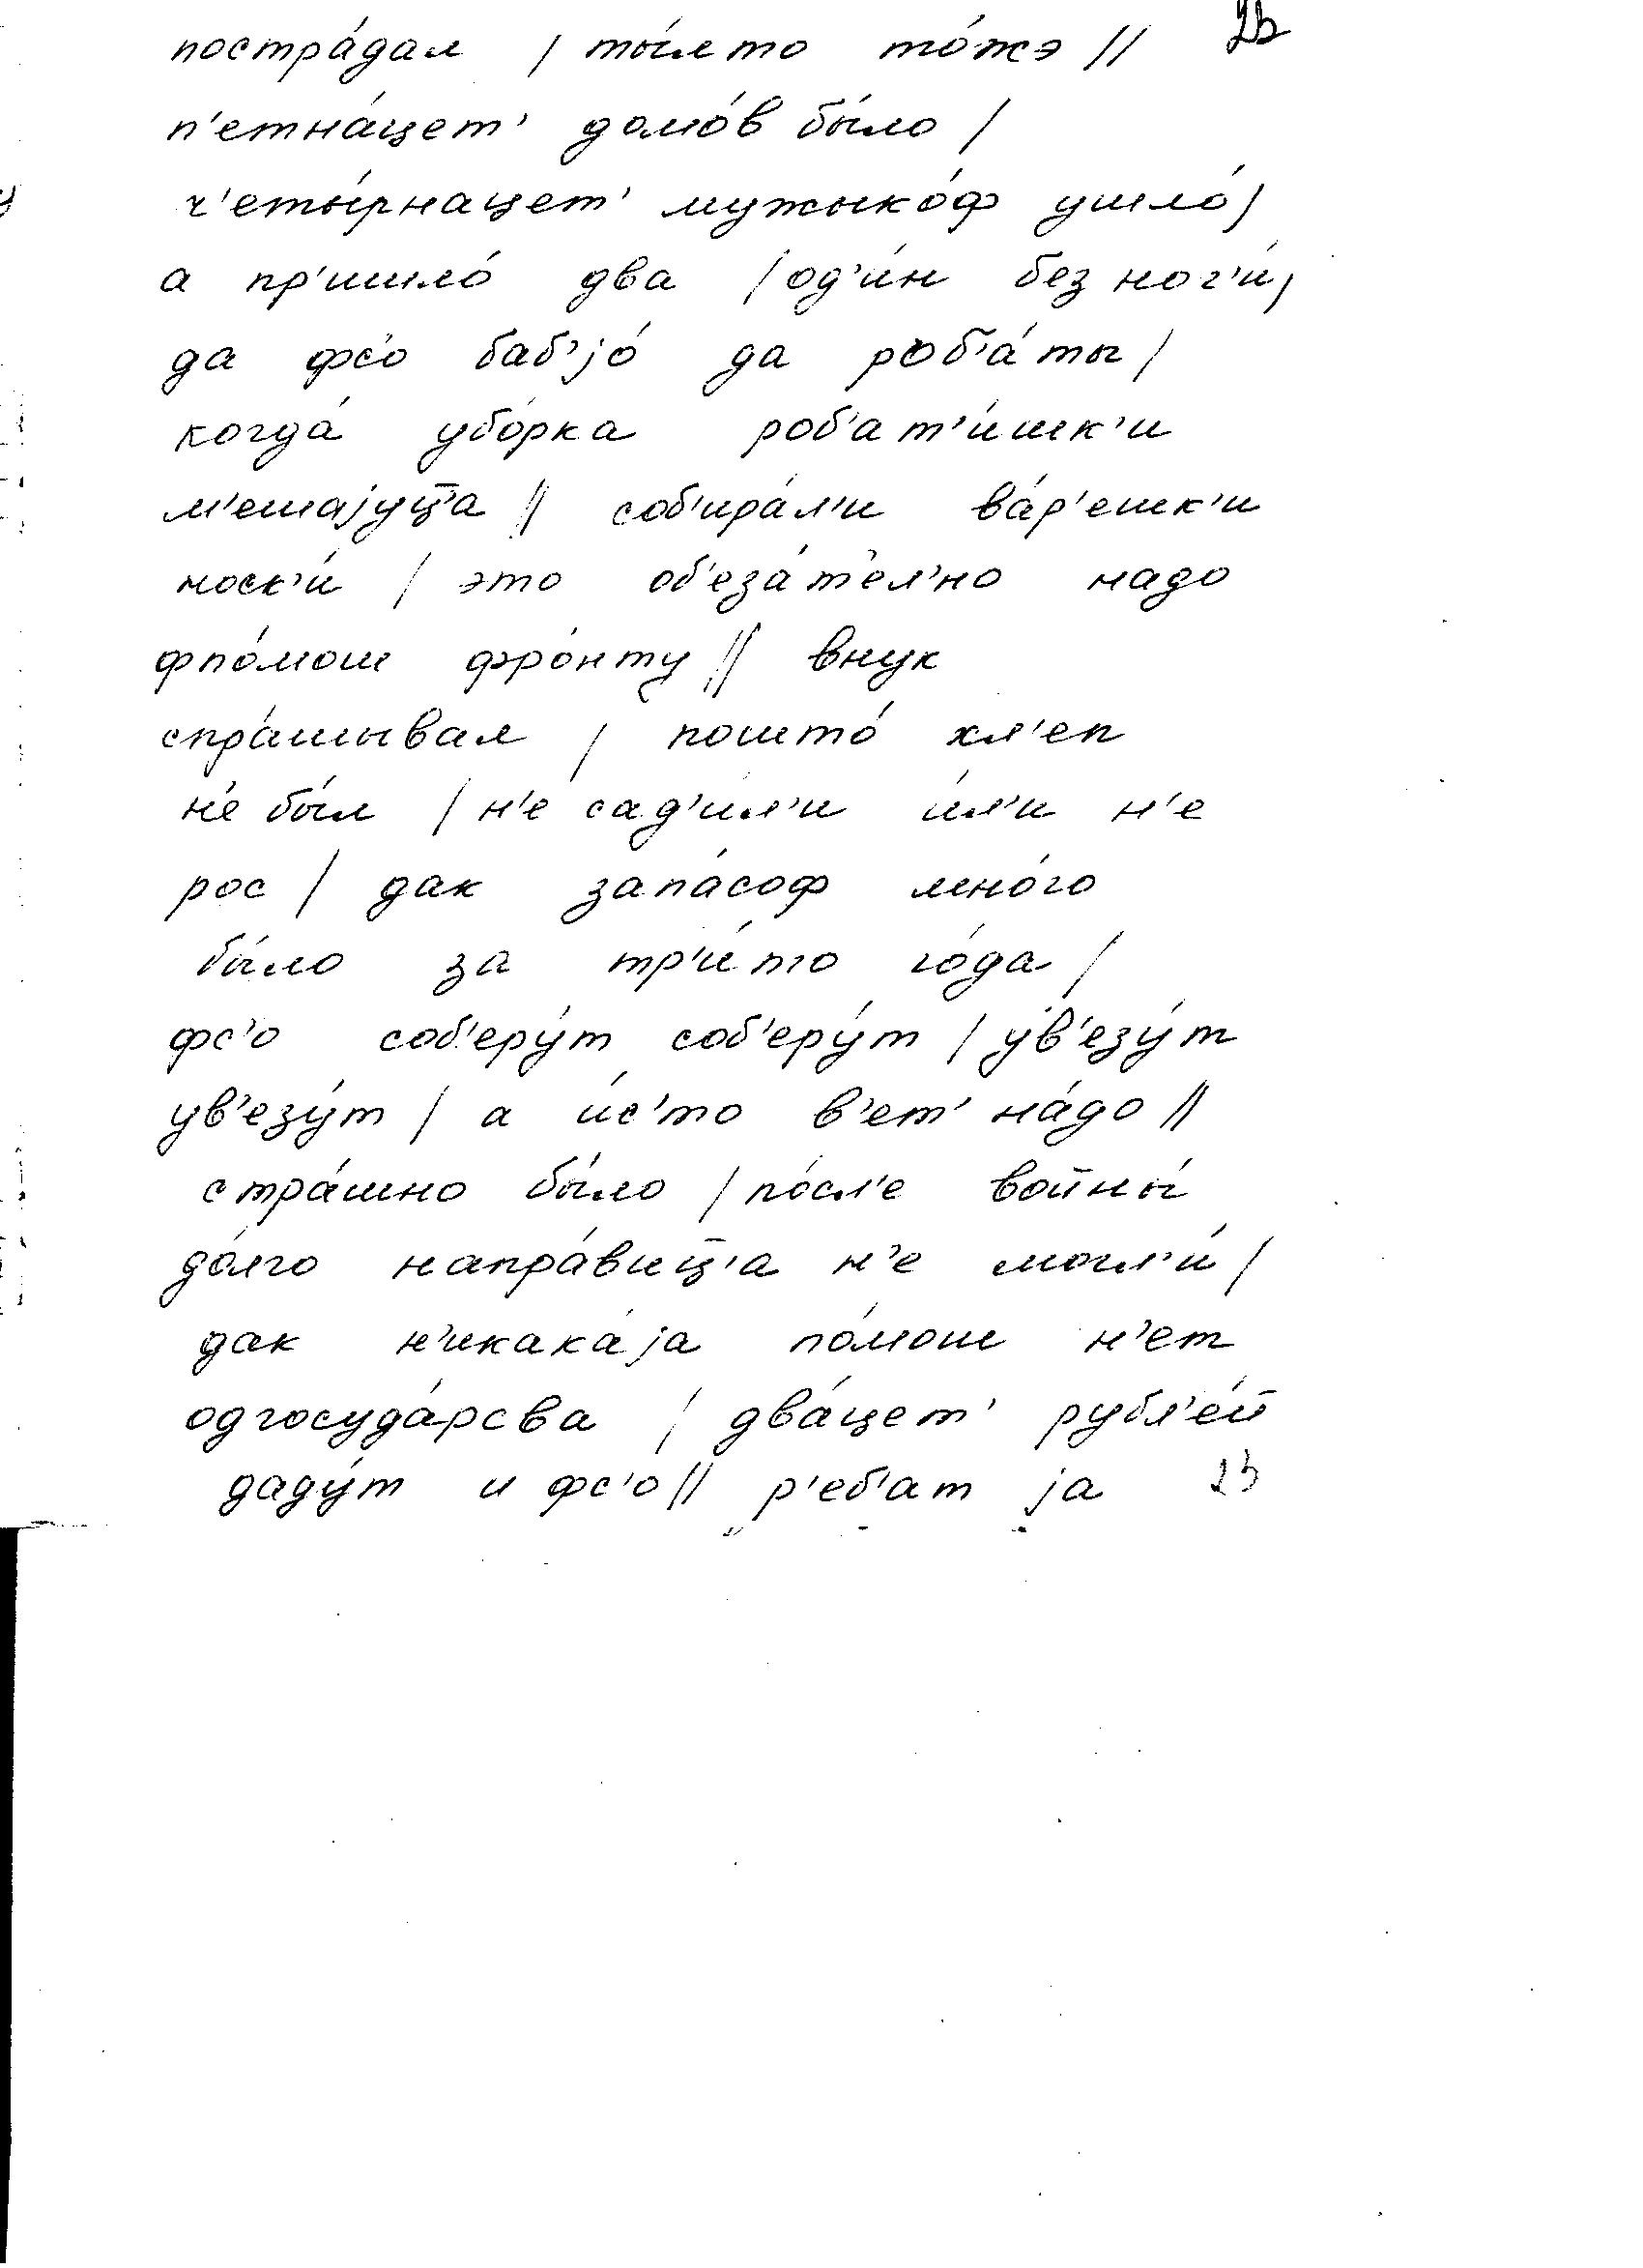 постра́дал / ты́лто то́жэ //
п'етна́цет' домо́в бы́ло /
ч'еты́рнацет' мужыко́ф ушло́ /
а пр'ишло́ два / од'и́н без ног'и́ /
да фс'о баб'jо́ да роб'а́ты /
когда́ убо́рка роб'ат'и́шк'и
м'ешаjуц̄'а // соб'ира́л'и ва́р'ешк'и
носк'и́ / это об'еза́т'ел'но надо
фпо́мош фро́нту // внук
спра́шывал / пошто́ хл'еп
н'е́ был / н'е сад'и́л'и и́л'и н'е
рос / дак запа́соф мно́го
бы́ло за тр'и́то го́да /
фс'о соб'еру́т соб'еру́т / ув'езу́т
ув'езу́т / а и́с'то в'ет' на́до //
стра́шно бы́ло / по́сл'е войны́
до́лго напра́виц̄'а н'е могл'и́ /
дак н'икака́jа по́мош н'ет
одгосуда́рсва / два́цет' рубл'е́й
даду́т и фс'о // р'еб'ат jа 23